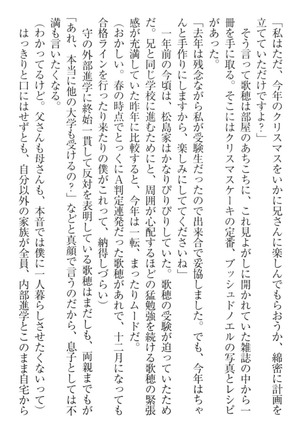 「私はただ、今年のクリスマスをいかに兄さんに楽しんでもらおうか、綿密に計画を
立てていただけですよ？」
そう言って歌穂は部屋のあちこちに、これ見よがしに開かれていた雑誌の中から一
冊を手に取る。そこにはクリスマスケーキの定番、ブッシュドノエルの写真とレシピ
があった。
「去年は残念ながら私が受験生だったので出来合で妥協しました。でも、今年はちゃ
んと手作りにしますから、楽しみにしててくださいね」
一年前の今頃は、松島家はかなりぴりぴりしていた。歌穂の受験が迫っていたため
だ。兄と同じ学校に進むためにと、周囲が心配するほどの猛勉強を続ける歌穂の緊張
感が充満していた昨年に比較すると、今年は一転、まったりムードだ。
（おかしい。春の時点でとっくにＡ判定連発だった歌穂があれで、十二月になっても
合格ラインを行ったり来たりの僕がこれって、納得しづらい）
守の外部進学に終始一貫して反対を表明している歌穂はまだしも、両親までもが
「あれ、本当に他の大学も受けるの？」などと真顔で言うのだから、息子としては不
満も言いたくなる。
（わかってるけど。父さんも母さんも、本音では僕に一人暮らしさせたくないって）
はっきりと口にはせずとも、自分以外の家族が全員、内部進学とこのまま自宅から